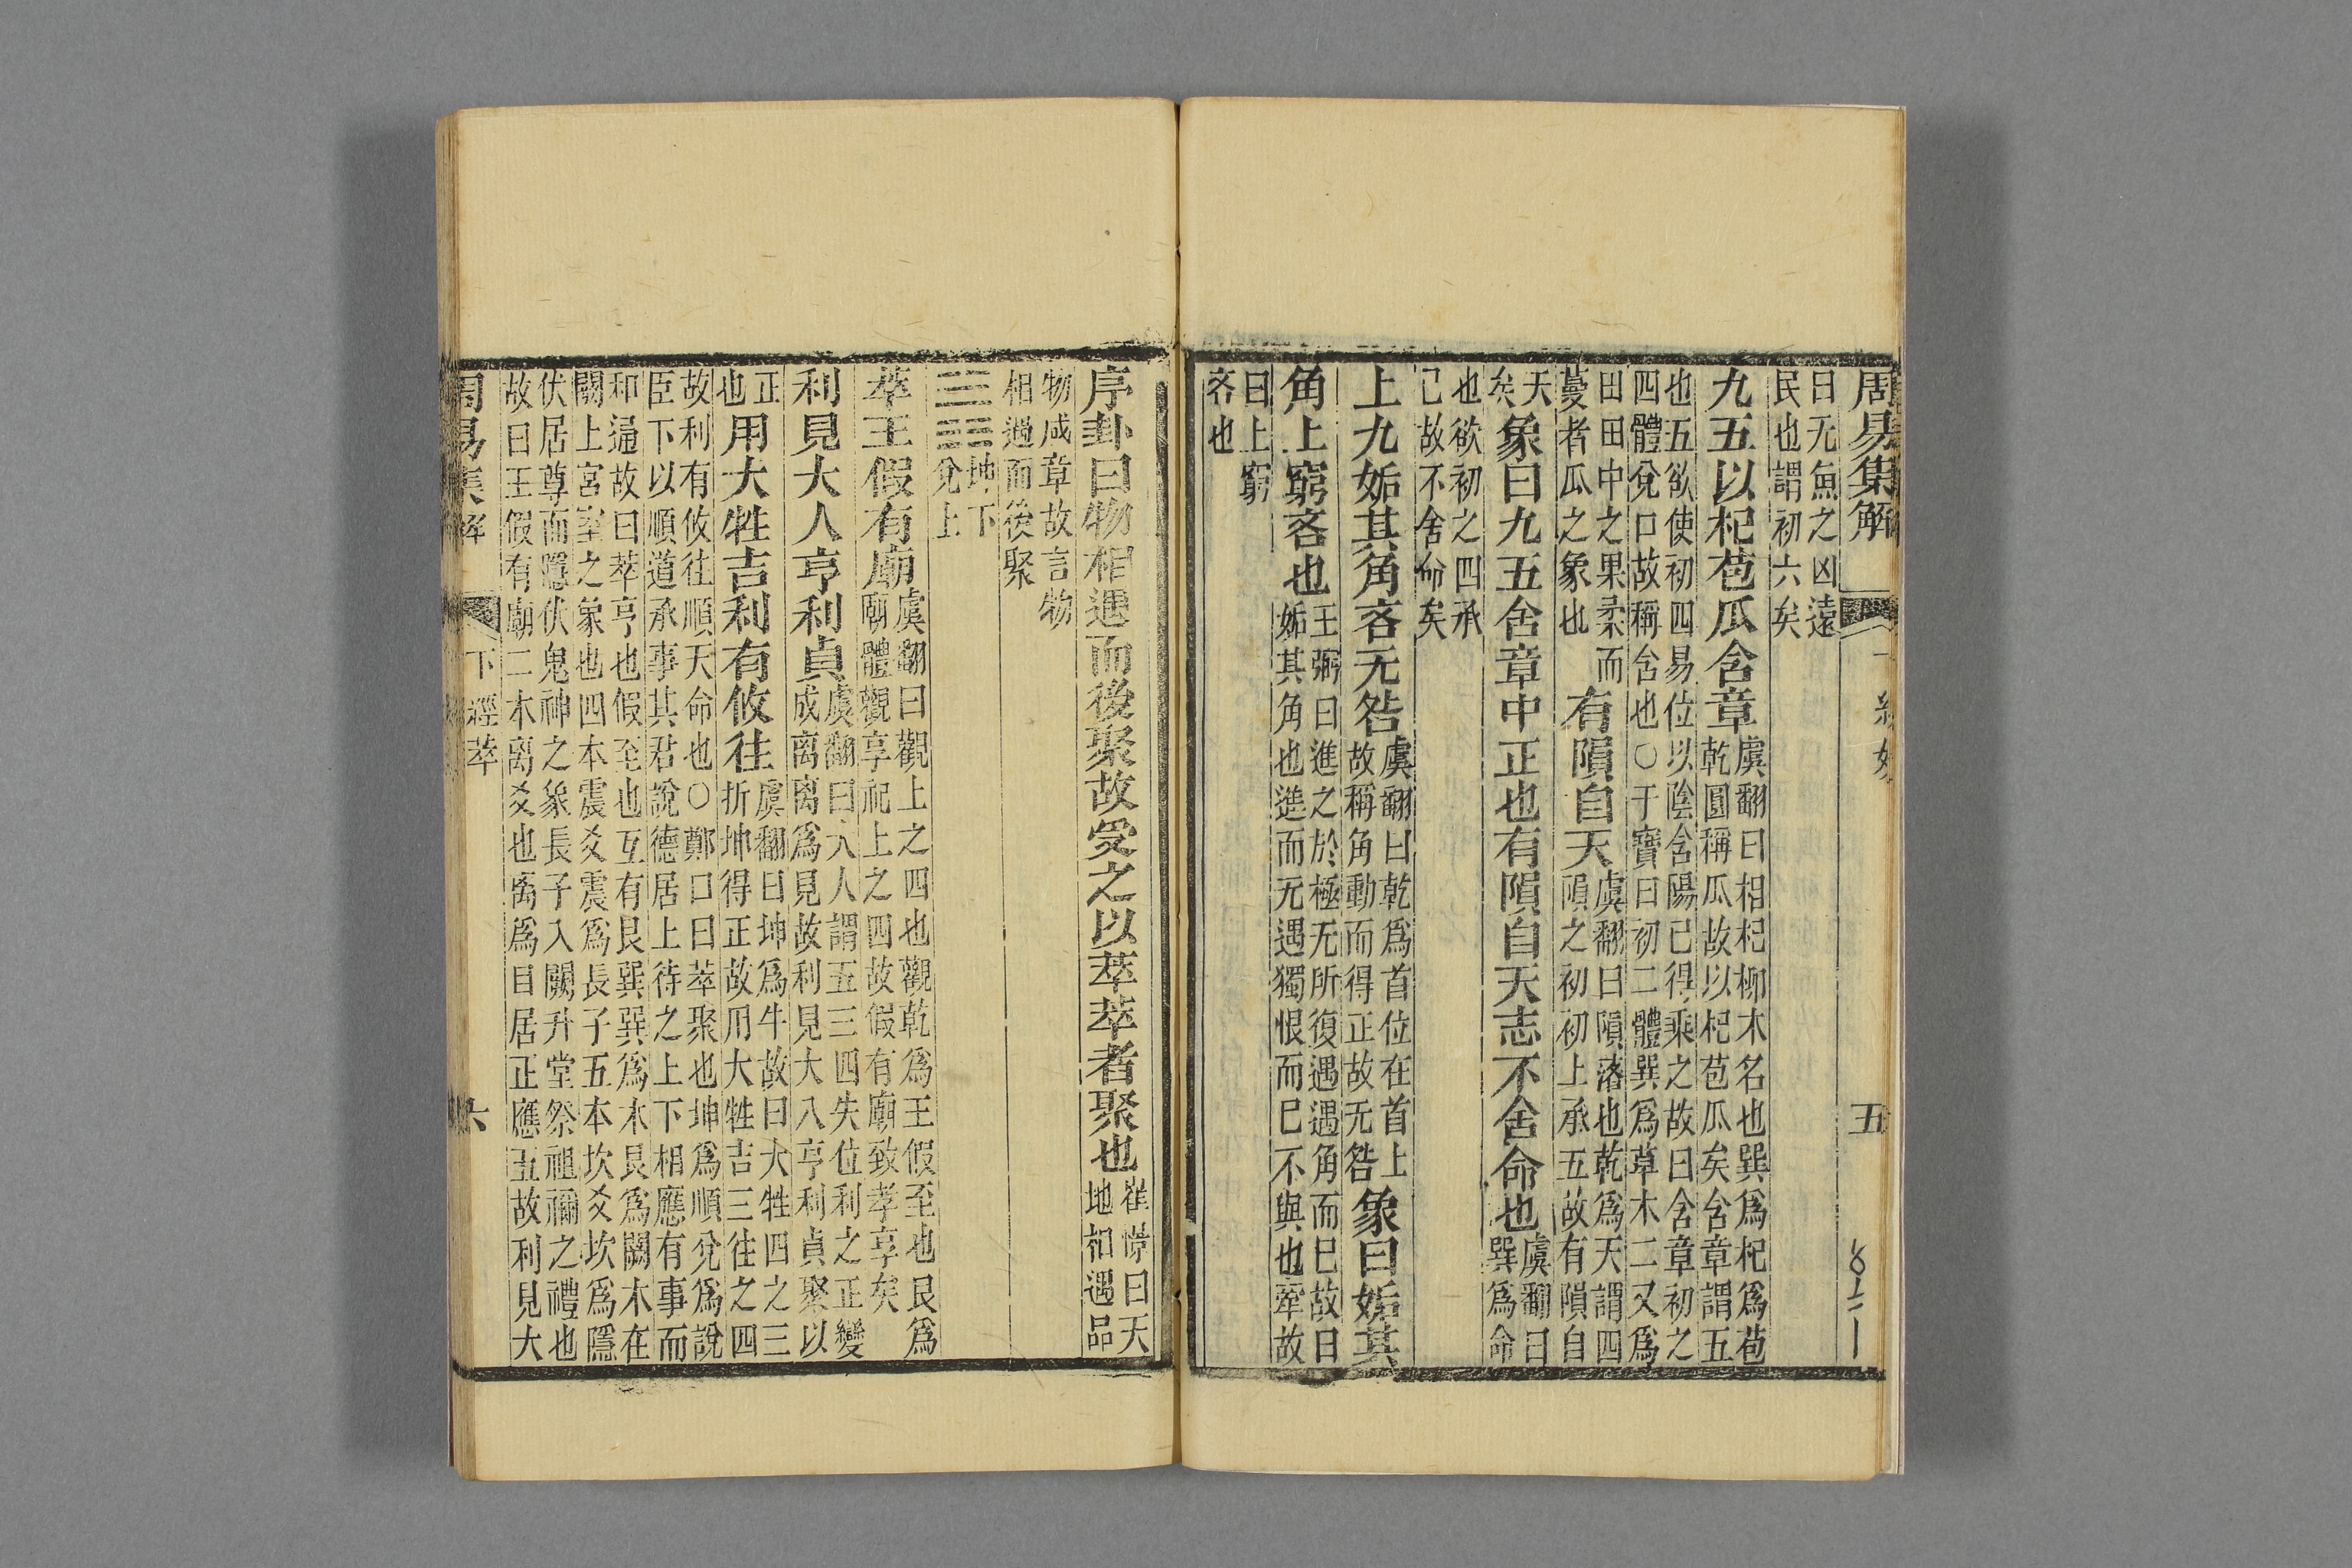 周易集解
五
曰无魚之凶遠
民也謂初六矣
九五以杞苞瓜含章虞翻曰相杞柳木名也巽爲杞爲苞
乾圓稱瓜故以杞苞瓜矣含章謂五
也五欲使初四易位以陰含陽已得乘之故曰含章初之
四體兌口故稱含也〇于寶曰初二體巽爲草木二又爲
田田中之果柔而
蔓者瓜之象也
有隕自天虞翻曰隕落也乾爲天謂四
隕之初初上承五故有隕自
天
矣
象曰九五含章中正也有隕自天志不舍命也虞翻曰
巽爲命
也欲初之四承
已故不舍命矣
上九姤其角吝无咎虞翻曰乾爲首位在首上
故稱角動而得正故无咎
象曰姤其
角上窮吝也王弼曰進之於極无所復遇遇角而巳故曰
姤其角也進而无遇獨恨而巳不與也牽故
曰上窮
吝也
序卦曰物相遇而後聚故受之以萃萃者聚也崔憬曰天
地相遇品
物咸章故言物
相遇而後聚
坤下
兌上
萃王假有廟虞翻曰觀上之四也觀乾爲王假至也艮爲
廟體觀享祀上之四故假有廟致孝享矣
利見大人亨利貞虞翻曰大人謂五三四失位利之正變
成离离爲見故利見大人亨利貞聚以
正
也
用大牲吉利有攸往虞翻曰坤爲牛故曰大牲四之三
折坤得正故用大牲吉三往之四
故利有攸往順天命也〇鄭口曰萃聚也坤爲順兌爲說
臣下以順道承事其君說德居上待之上下相應有事而
和通故曰萃亨也假至也互有艮巽巽爲木艮爲闕木在
闕上宮室之象也四本震爻震爲長子五本坎爻坎爲隱
伏居尊而隱伏鬼神之象長子入闕升堂祭祖禰之禮也
故曰王假有廟二本离爻也离爲目居正應五故利見大
周易集解
下經萃
六